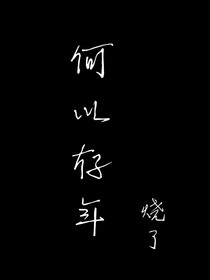 何以存年
烧了